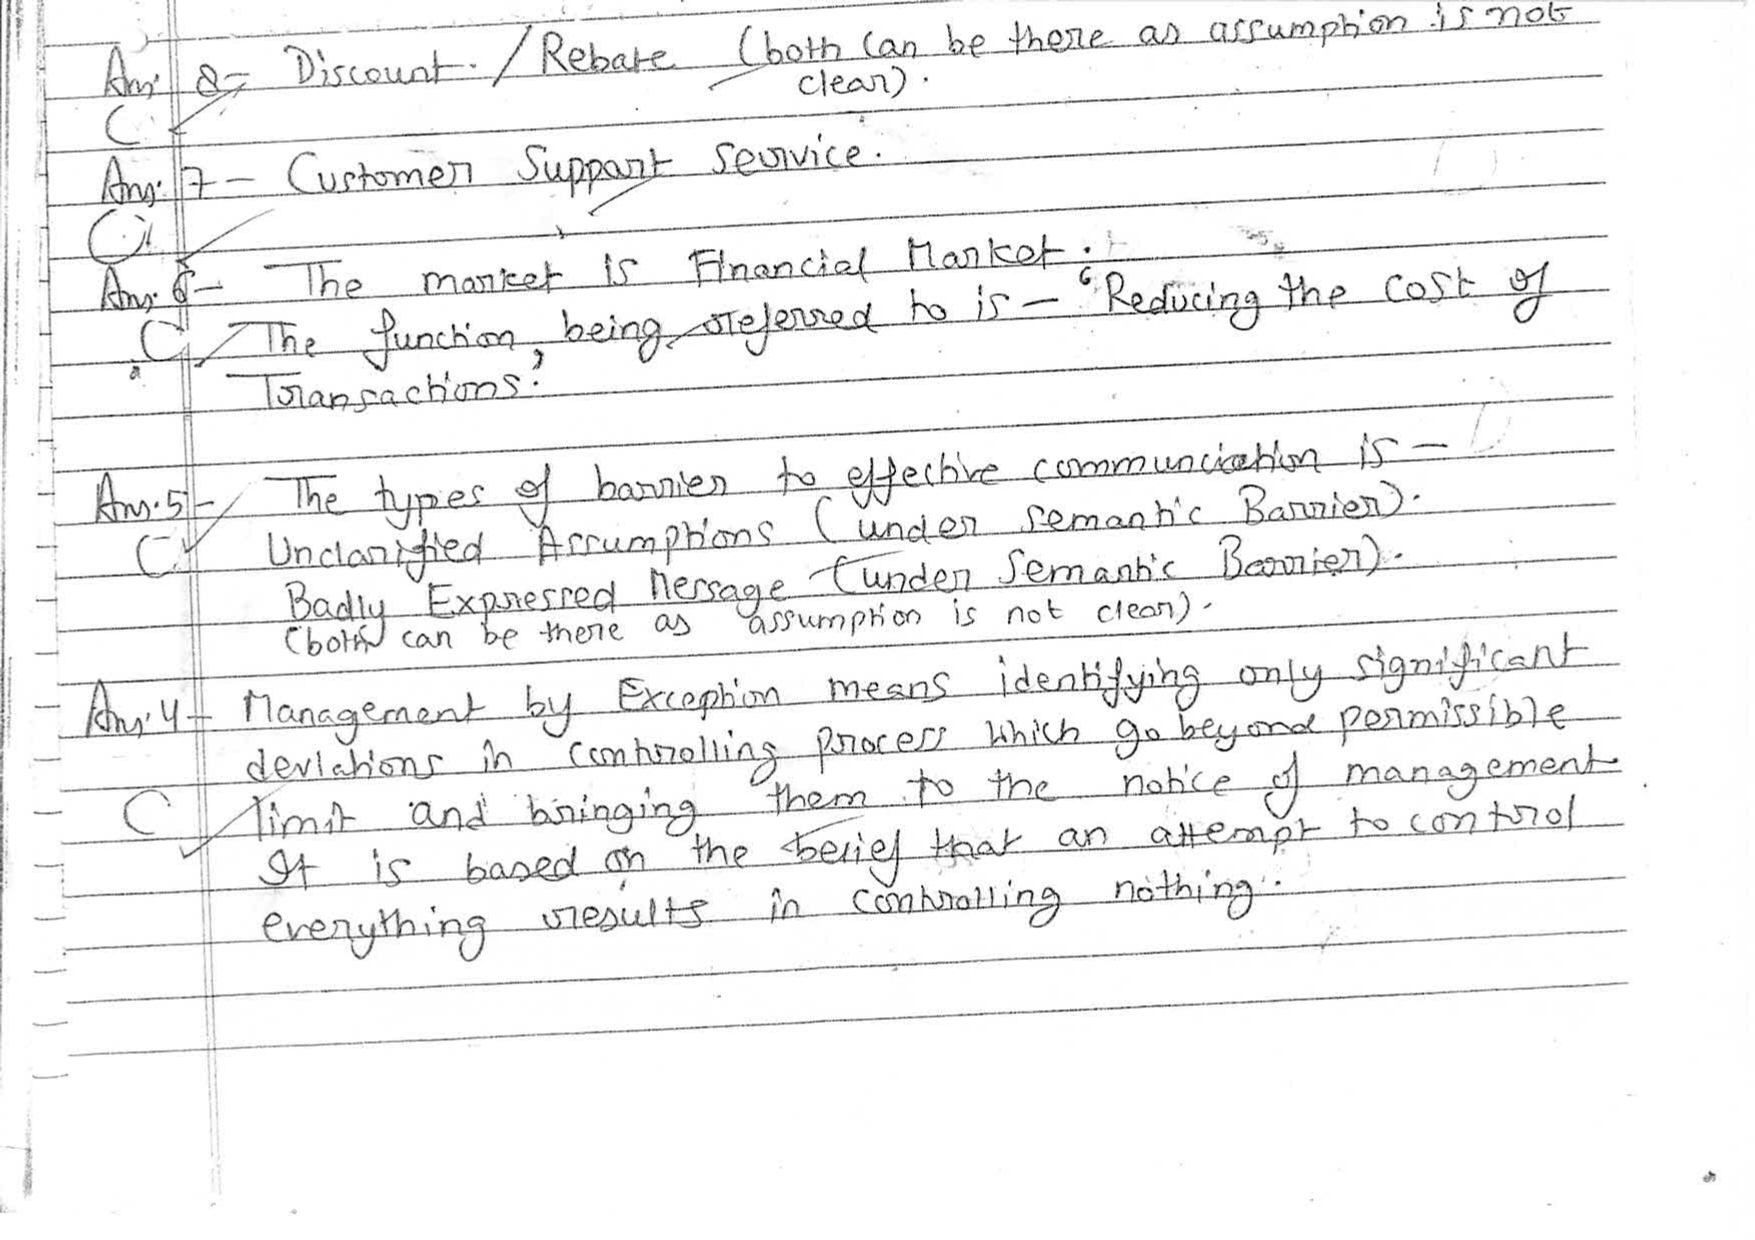 Ans 8- Discount. / Rebate (both can be there as assumption is not
clear).
C
Ans. 7- Customer Support Service.
C
Ans. 6- The market is Financial Market.
C The function, being referred to is - 'Reducing the cost of
Transactions.'
Ans. 5- The types of barrier to effective communciation is -
C Unclarified Assumptions (under semantic Barrier).
Badly Expressed Message (under Semantic Barrier).
(both can be there as assumption is not clear).
Ans. 4- Management by Exception means identifying only significant
deviations in controlling process which go beyond permissible
C limit and bringing them to the notice of management
It is based on the belief that an attempt to control
everything results in controlling nothing.